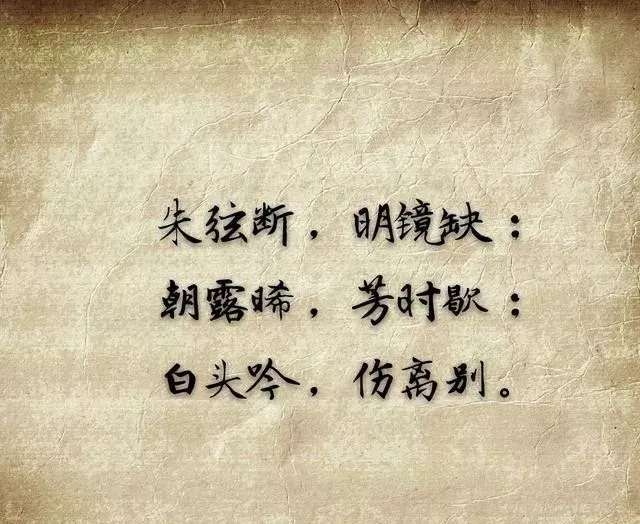 朱弦断，明镜缺；
朝露晞，芳时歇；
白头吟，伤离别。